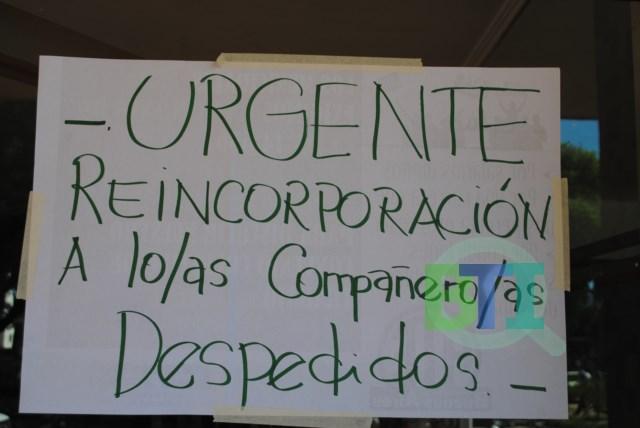 –. URGENTE
REINCORPORACIÓN
A lo/as Compañero/as
Despedidos. –
UTI